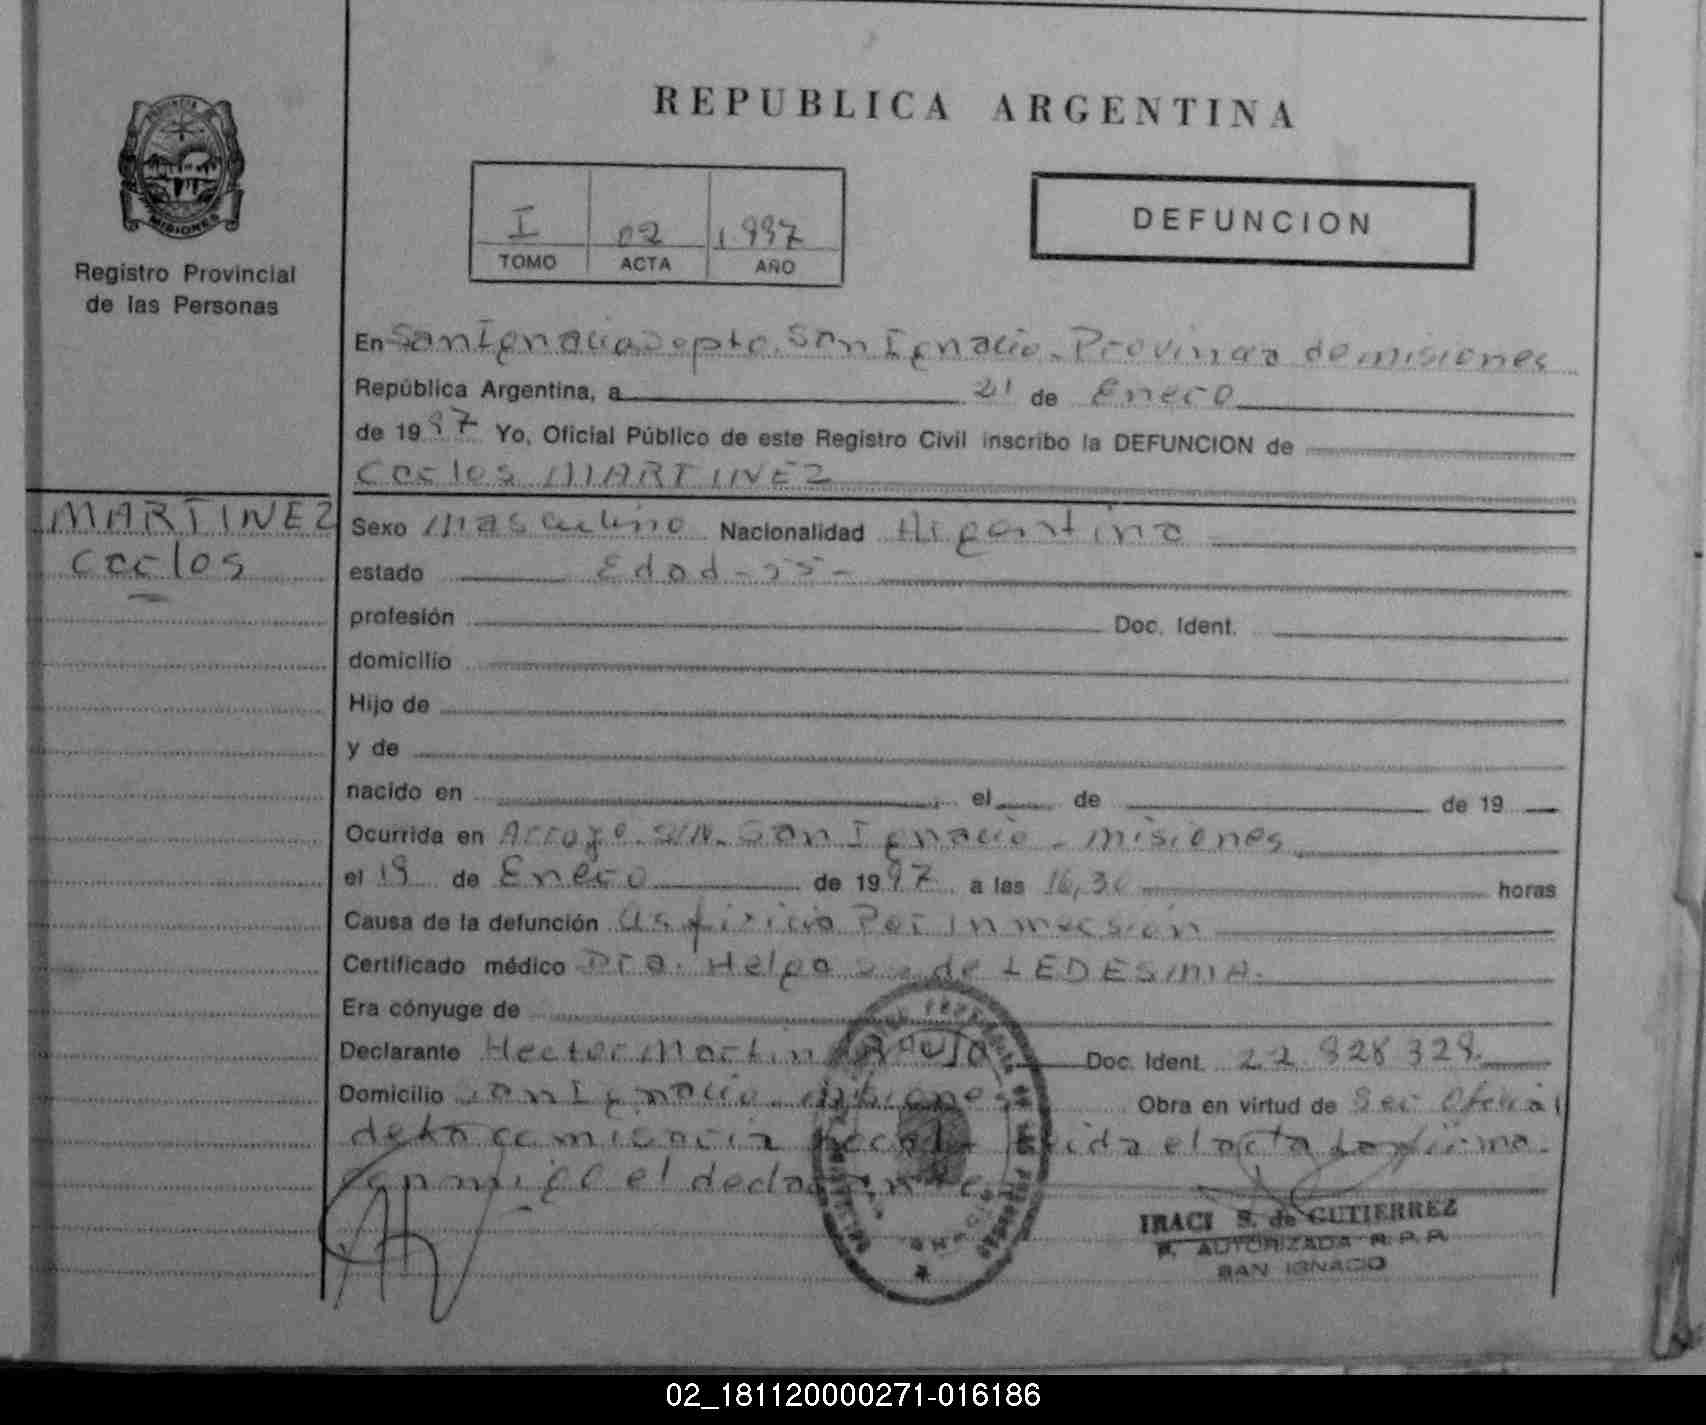 REPUBLICA ARGENTINA
MISIONES
Registro Provincial
de las Personas
I 02 1.997
TOMO ACTA AÑO
DEFUNCION
En San Ignacio Dpto. San Ignacio - Provincia de misiones
República Argentina, a 21 de Enero
de 1997 Yo, Oficial Público de este Registro Civil inscribo la DEFUNCION de
Carlos MARTINEZ
MARTINEZ
Carlos
Sexo Masculino Nacionalidad Argentina
estado Edad
profesión Doc. Ident.
domicilio
Hijo de
y de
nacido en el de de 19
Ocurrida en Arroyo S/N. San Ignacio - misiones
el 19 de Enero de 1997 a las 16,30 horas
Causa de la defunción asfixia Por Inmersión
Certificado médico Dra. Helga de LEDESMA.
Era cónyuge de
Declarante Hector Martin Doc. Ident. 22.928.329
Domicilio San Ignacio misiones Obra en virtud de Ser Oficial
de la comisaria el acta La firma
conmigo el declarante
IRACI S. de GUTIERREZ
F. AUTORIZADA R. P. P.
SAN IGNACIO
02_181120000271-016186